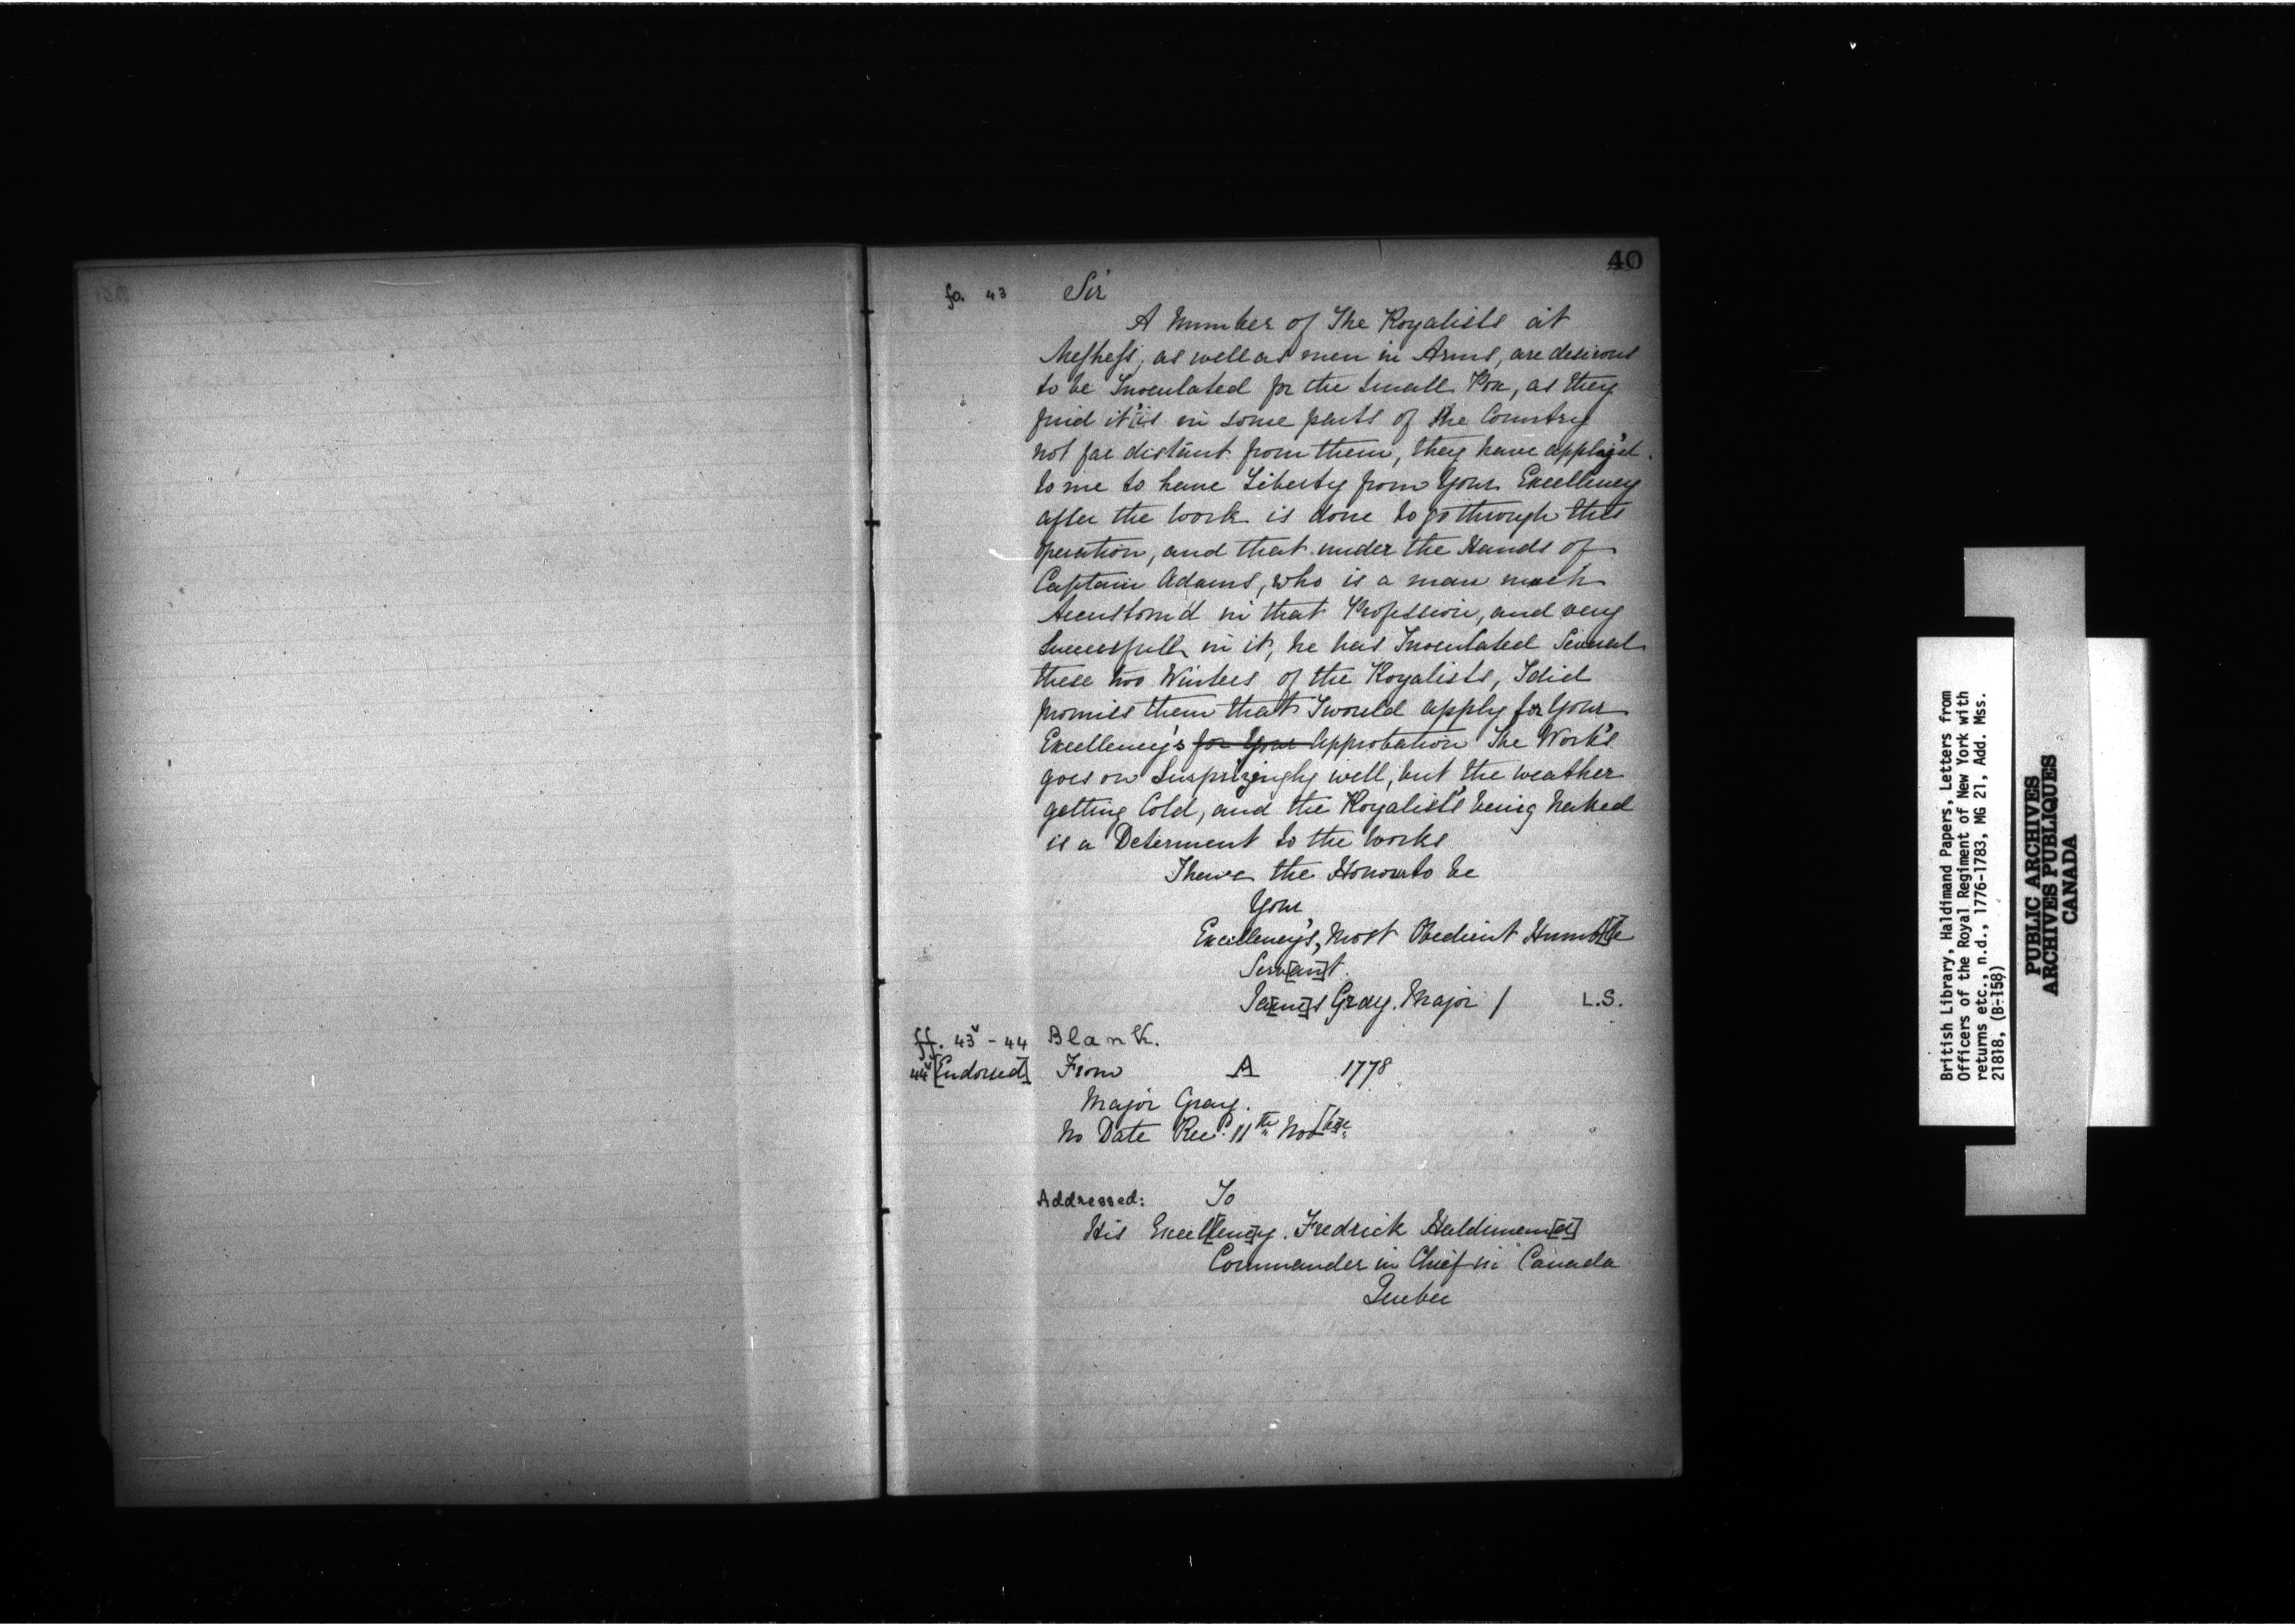 40
fo. 43 Sir
A Number of The Royalists at
as well as men in Arms, are desirous
to be Inoculated for the Small Pox, as they
find it [i]s in some parts of the Country
not far distant from them, they have apply'd
to me to have Liberty from Your Excellency
after the work is done to go through this
Operation, and that under the Hands of
Captain Adams, who is a man much
Accustom'd in that Profession, and very
Successfull in it, he has Inoculated Several
these two Winters of the Royalists, I did
promiss them that I would apply for Your
Excellency's for Your Approbation The Work's
goes on Surprizingly well, but the weather
getting Cold, and the Royalist's being Naked
is a Determent to the Works
I have the Honour to be
Your
Excellency's, Most Obedient Humb[l]e
Serv[an]t.
Ja[me]s Gray. Major / L.S.
ff. 43v - 44 Blank.
44v [Endorsed] From A 1778
Major Gray.
No Date Rec'd. 11th Nov[be]r.
Addressed: To
His Excel[lenc]y. Fredrick Haldiman[d]
Commander in Chief in Canada
Quebec
British Library, Haldimand Papers, Letters from
Officers of the Royal Regiment of New York with
returns etc., n.d., 1776-1783, MG 21, Add. Mss.
21818, (B-158)
PUBLIC ARCHIVES
ARCHIVES PUBLIQUES
CANADA